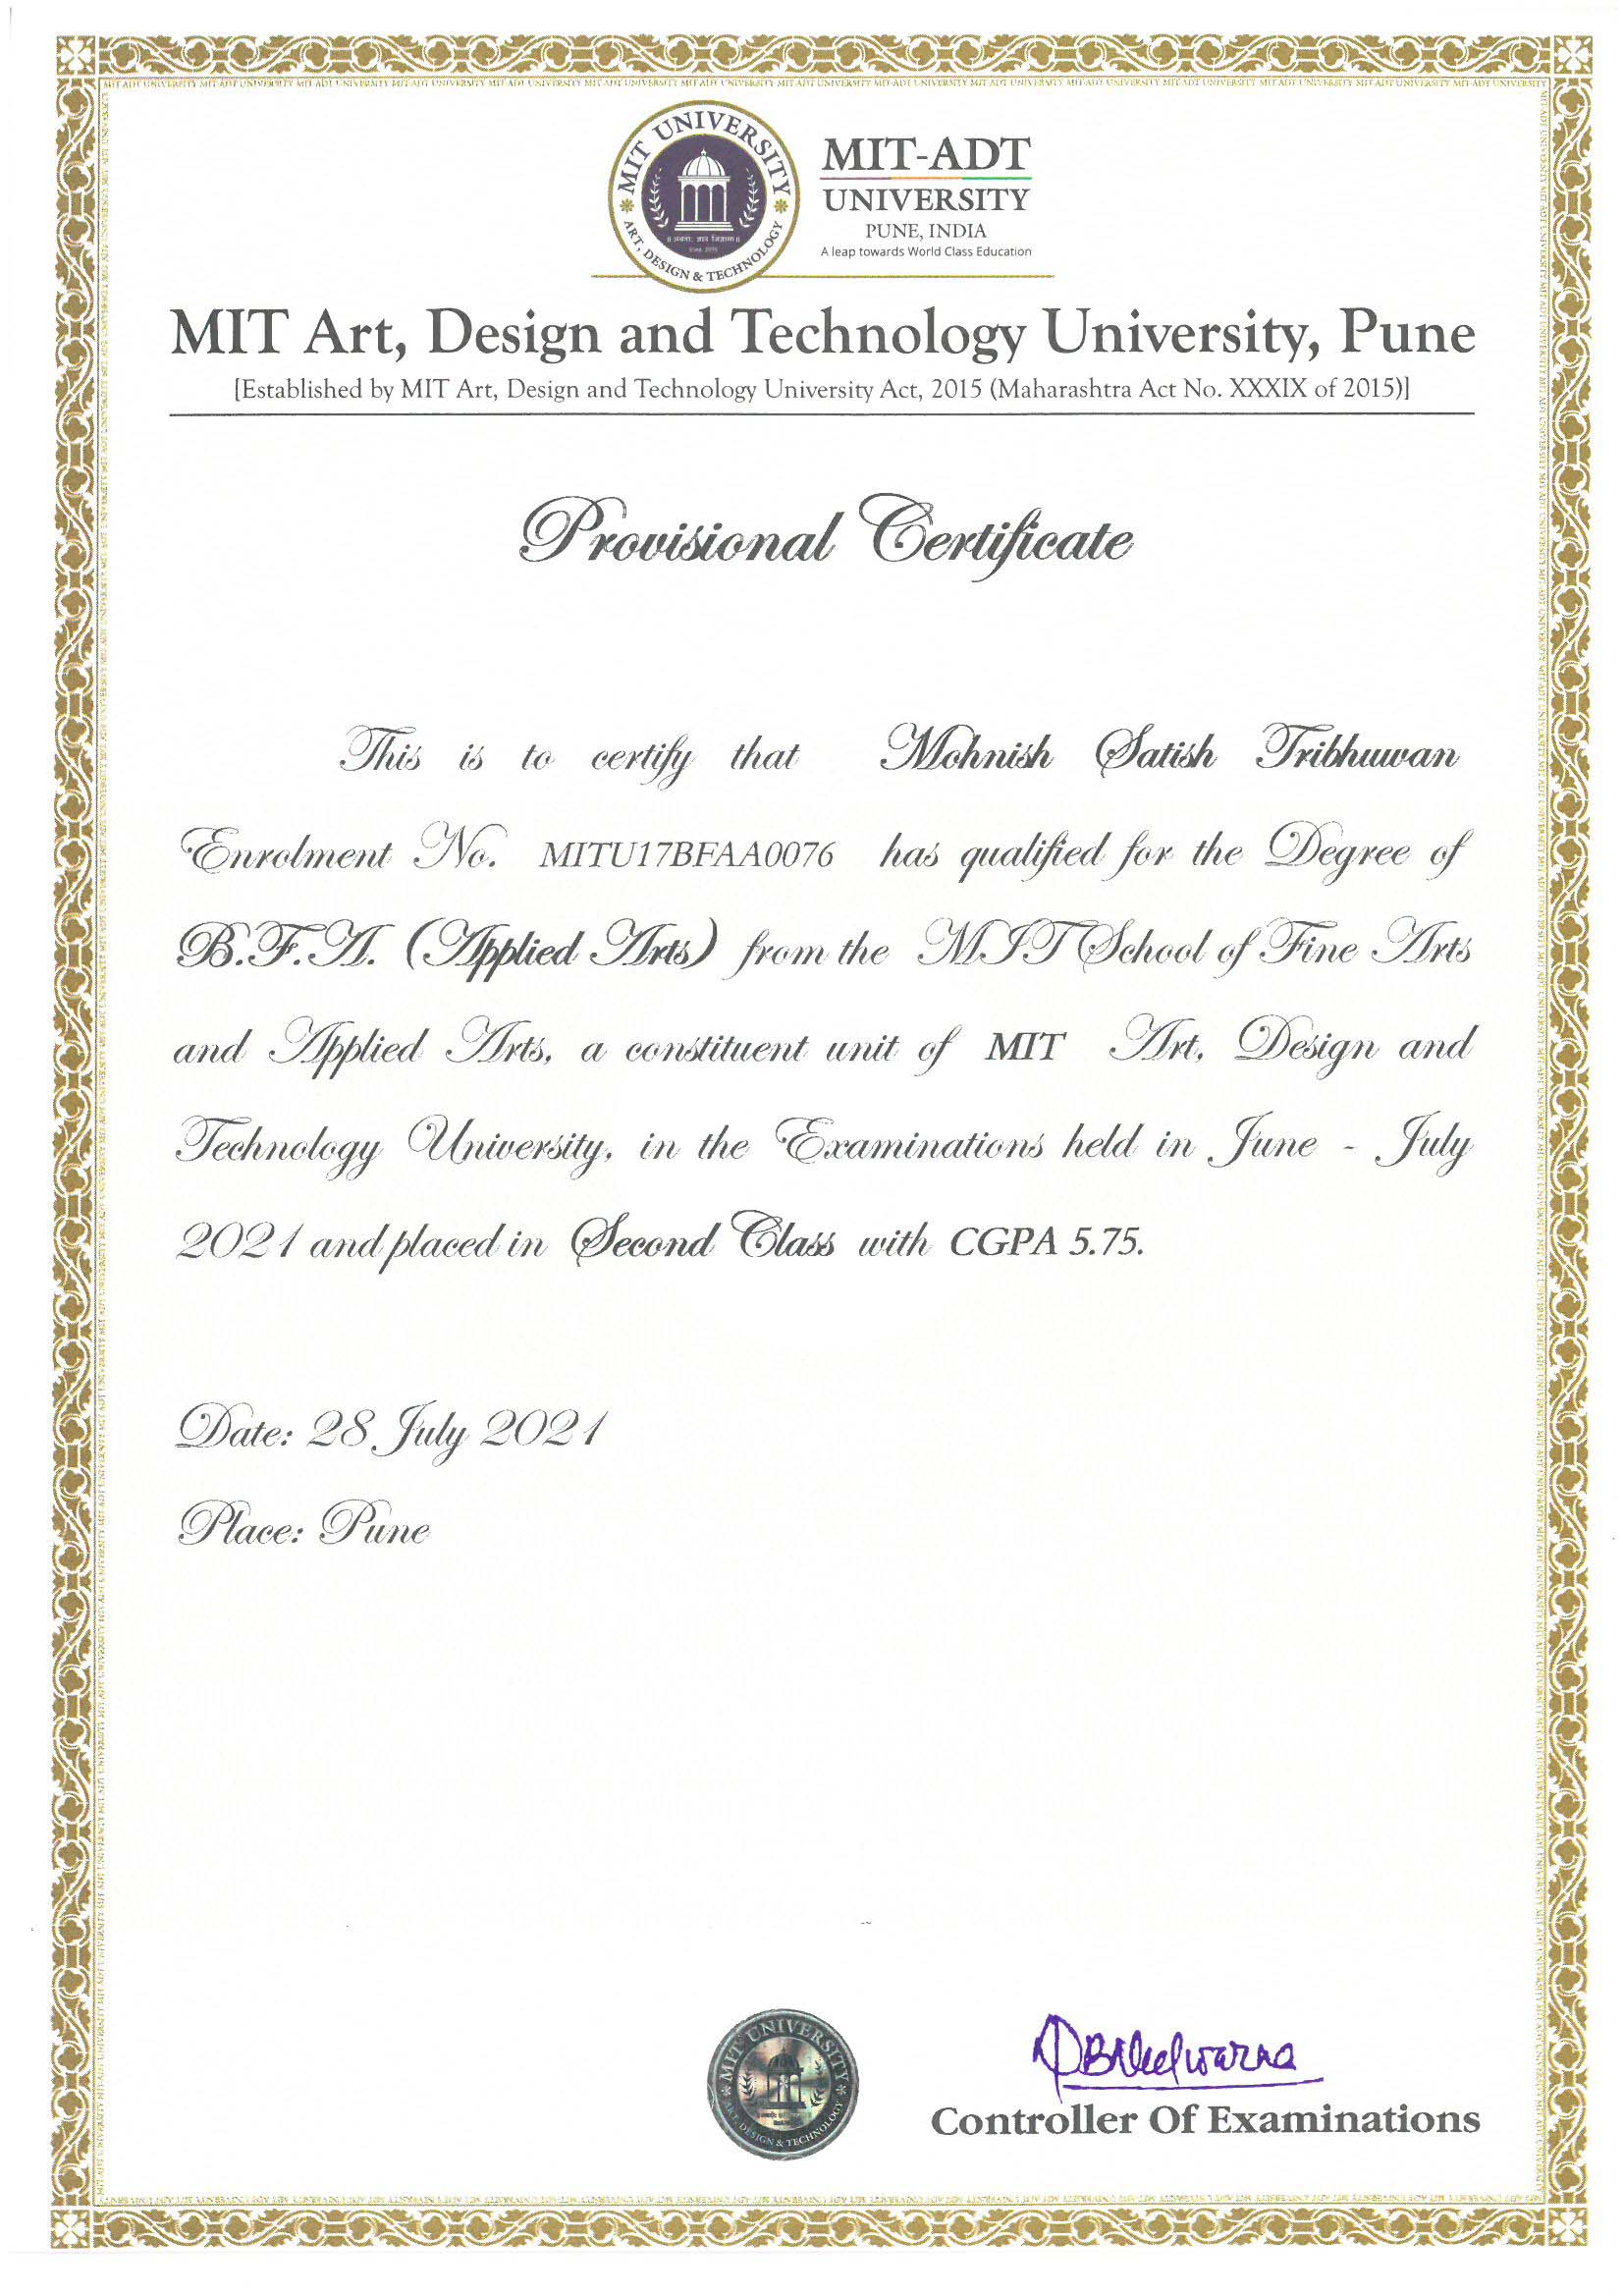 MIT UNIVERSITY
ART, DESIGN & TECHNOLOGY
MIT-ADT
UNIVERSITY
PUNE, INDIA
A leap towards World Class Education
MIT Art, Design and Technology University, Pune
[Established by MIT Art, Design and Technology University Act, 2015 (Maharashtra Act No. XXXIX of 2015)]
Provisional Certificate
This is to certify that Mohnish Satish Tribhuwan
Enrolment No. MITU17BFAA0076 has qualified for the Degree of
B.F.A. (Applied Arts) from the MIT School of Fine Arts
and Applied Arts, a constituent unit of MIT Art, Design and
Technology University, in the Examinations held in June - July
2021 and placed in Second Class with CGPA 5.75.
Date: 28 July 2021
Place: Pune
MIT UNIVERSITY
ART, DESIGN & TECHNOLOGY
Controller Of Examinations